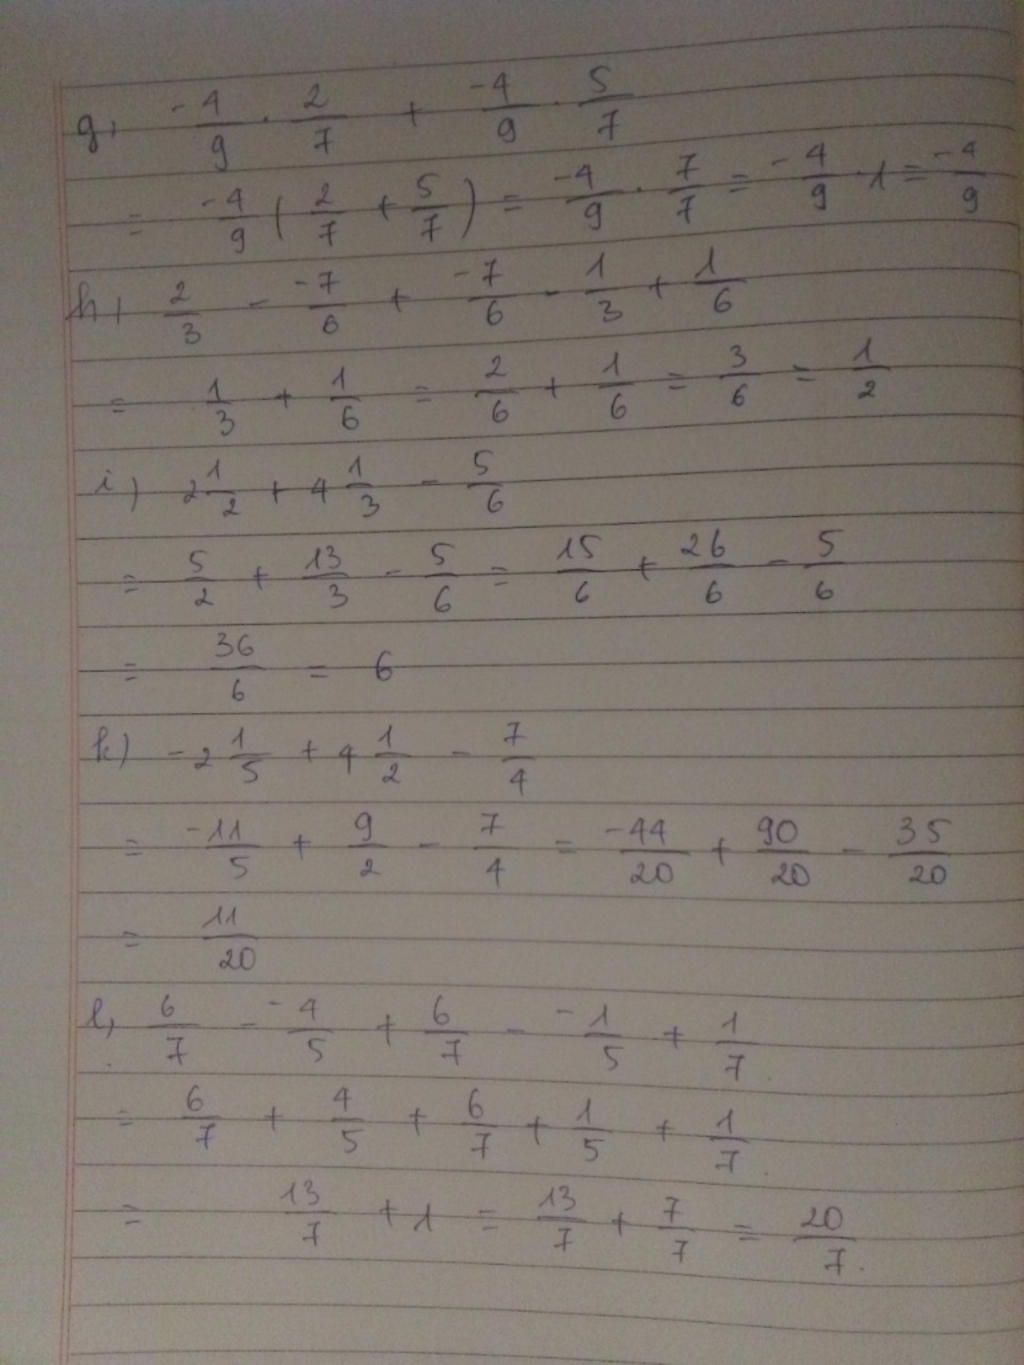 g, -4/9 . 2/7 + -4/9 . 5/7
= -4/9 ( 2/7 + 5/7 ) = -4/9 . 7/7 = -4/9 . 1 = -4/9
h, 2/3 - -7/6 + -7/6 - 1/3 + 1/6
= 1/3 + 1/6 = 2/6 + 1/6 = 3/6 = 1/2
i) 2 1/2 + 4 1/3 - 5/6
= 5/2 + 13/3 - 5/6 = 15/6 + 26/6 - 5/6
= 36/6 = 6
k) -2 1/5 + 4 1/2 - 7/4
= -11/5 + 9/2 - 7/4 = -44/20 + 90/20 - 35/20
= 11/20
l, 6/7 - -4/5 + 6/7 - -1/5 + 1/7.
= 6/7 + 4/5 + 6/7 + 1/5 + 1/7.
= 13/7 + 1 = 13/7 + 7/7 = 20/7.